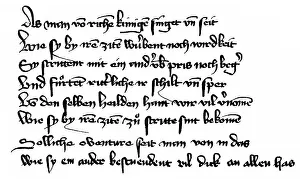 Als man vō riche kunigē singet vn̄ seit
Wie sy by irē zitē wurbent noch wirdikeit
Sy strittent mit ein andˀ vb pris noch begˀ
Vnd fůrtēt ritterliche ir schilt vn̄ sper
Von den selben helden hant wir vil vˀnomē
Wie sy by irē zitē zů strite sint bekomē
Solliche oventure seit man von in das
Wie sy ein ander bestundent vil dick an allen has